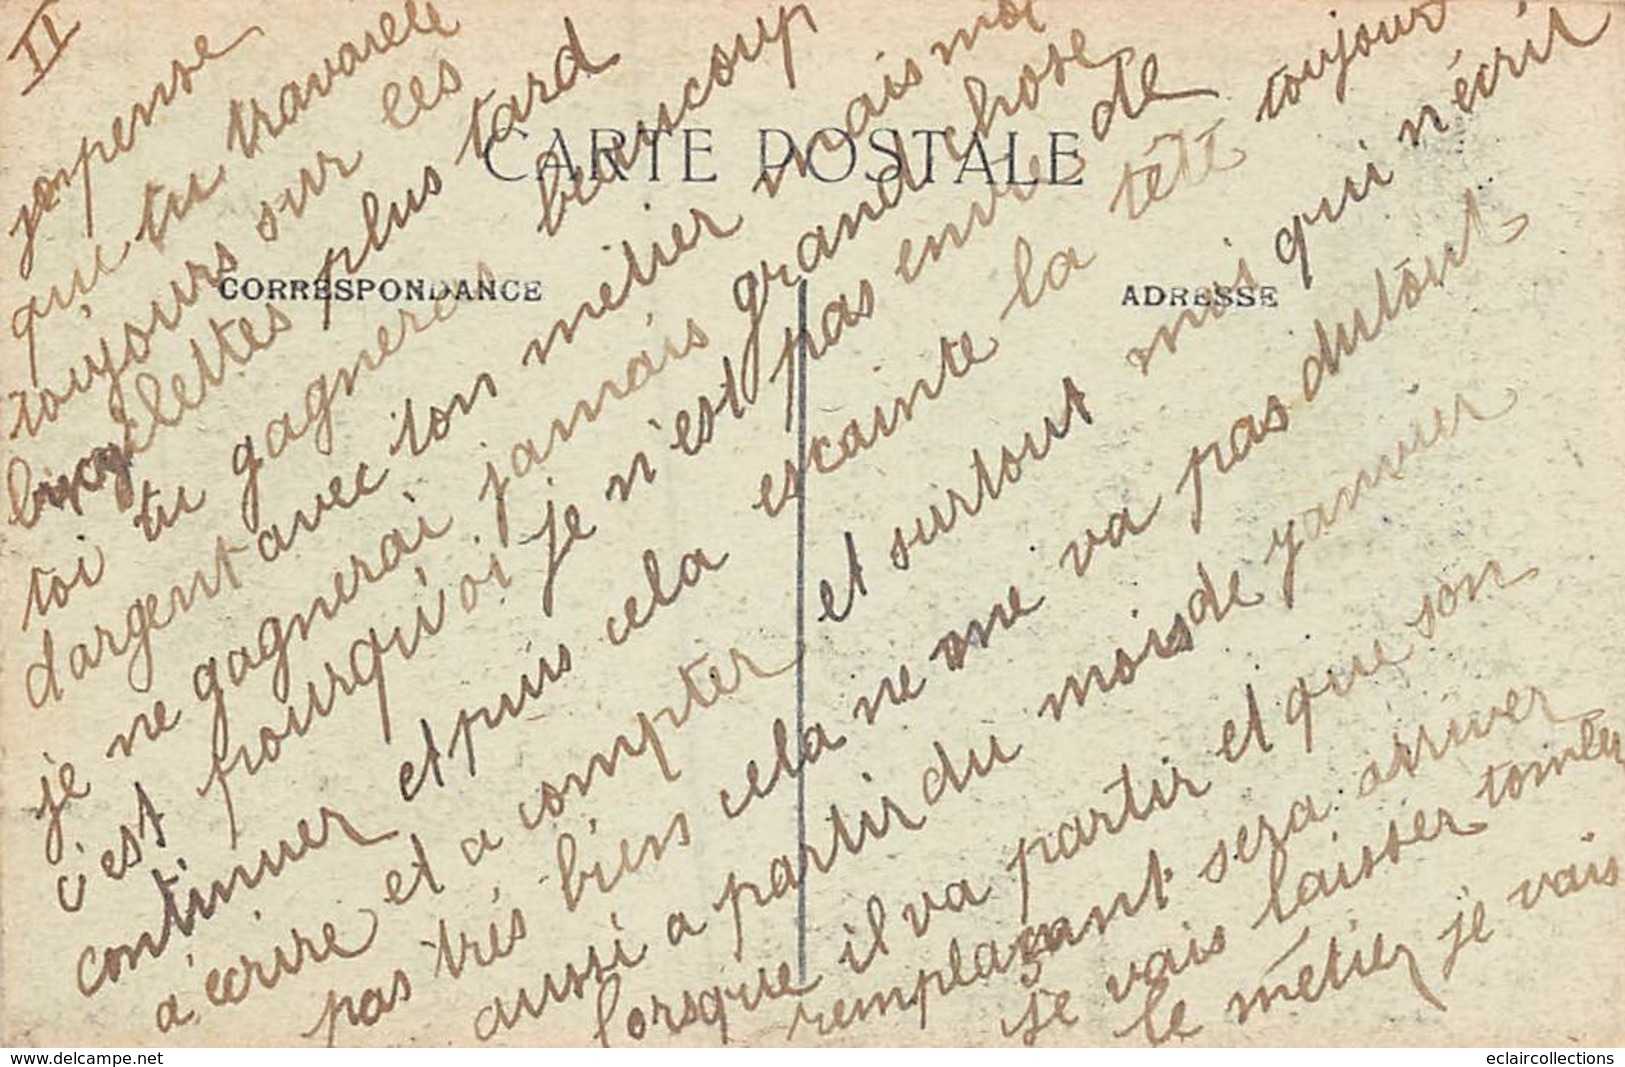 II
CARTE POSTALE
CORRESPONDANCE
ADRESSE
jenpense
qu'il tu travaille
toujours sur les
bicyclettes plus tard
toi tu gagneras beaucoup
d'argent avec ton métier mais moi
je ne gagnerai jamais grand chose
c'est pourqu'oi je n'est pas envie de
continuer et puis cela escainte la tête toujour
a écrire et a compter et surtout mois qui n'écrit
pas très biens cela ne me va pas dutout.
aussi a partir du mois de janvier
lorsque il va partir et que son
remplacant sera arriver
je vais laisser tomber
le métier je vais
www.delcampe.net
eclaircollections